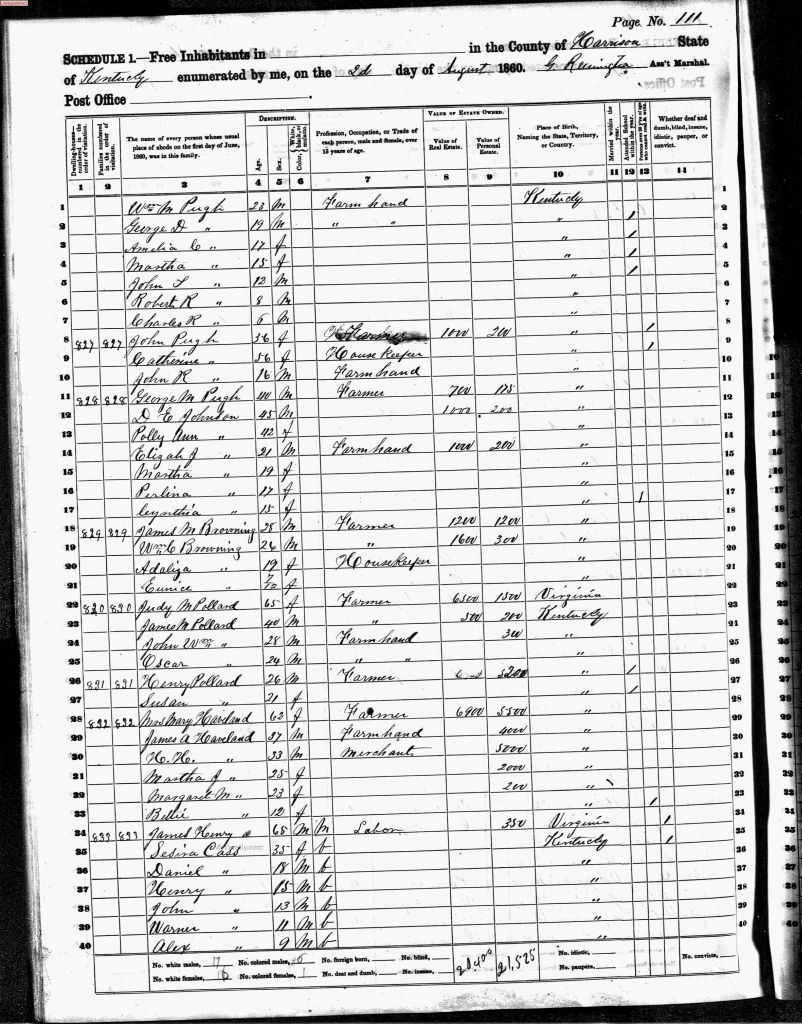 Page No. 111
SCHEDULE 1.—Free Inhabitants in in the County of Harrison State
of Kentucky enumerated by me, on the 2d day of August 1860. G. Remington Ass't Marshal.
Post Office
Dwelling-houses—numbered in the order of visitation. Families numbered in the order of visitation. The name of every person whose usual place of abode on the first day of June, 1860, was in this family. DESCRIPTION. Age. Sex. Color, White, black, or mulatto. Profession, Occupation, or Trade of each person, male and female, over 15 years of age. VALUE OF ESTATE OWNED. Value of Real Estate. Value of Personal Estate. Place of Birth, Naming the State, Territory, or Country. Married within the year. Attended School within the year. Persons over 20 y'rs of age who cannot read & write. Whether deaf and dumb, blind, insane, idiotic, pauper, or convict.
1 2 3 4 5 6 7 8 9 10 11 12 13 14
1 Wm M Pugh 23 M Farm hand Kentucky 1
2 George D " 19 M " " " 1 2
3 Amelia C " 17 f " 1 3
4 Martha " 15 f " 1 4
5 John T " 12 M " 1 5
6 Robert R " 8 M " 6
7 Charles R " 6 M " 7
8 827 827 John Pugh 56 f 1000 200 " 1 8
9 Catherine " 56 f House keeper " 1 9
10 John R " 16 M Farm hand " 10
11 828 828 George M Pugh 40 M Farmer 700 175 " 11
12 D E Johnson 45 M 1000 200 " 12
13 Polly Ann " 42 f " 13
14 Elizah J " 21 M Farm hand 1000 200 " 14
15 Martha " 19 f " 15
16 Perlina " 17 f " 16
17 Cynthia " 15 f " 1 17
18 829 829 James M Browning 28 M Farmer 1200 1200 " 18
19 Wm C Browning 26 M " 1600 300 " 19
20 Adaliza " 19 f House keeper " 20
21 Eunice " f " 21
22 820 820 Judy M Pollard 65 f Farmer 6500 1500 Virginia 22
23 James M Pollard 40 M " 500 200 Kentucky 23
24 John Wm " 28 M Farm hand 300 " 24
25 Oscar " 24 M " " " 25
26 831 831 Henry Pollard 26 M Farmer 5200 " 1 26
27 Susan " 21 f " 1 27
28 832 832 Mrs Mary Haveland 62 f Farmer 6900 5500 " 28
29 James A Haveland 37 M Farm hand 4000 " 29
30 H. H. " 33 M Merchant 5000 " 30
31 Martha J " 25 f 2000 " 31
32 Margaret M " 23 f 200 " 32
33 Bettie " 12 f " 1 33
34 833 833 James Henry 65 M M Labor 350 Virginia 1 34
35 Sesira Cass 35 f b Kentucky 1 35
36 Daniel " 18 M b " 36
37 Henry " 15 M b " 37
38 John " 13 M b " 38
39 Warner " 11 M b " 39
40 Alex " 9 M b " 40
No. white males, 17 No. colored males, 6 No. foreign born, No. blind, 20,400 21,525 No. idiotic, No. convicts,
No. white females, 16 No. colored females, 1 No. deaf and dumb, No. insane, No. paupers,